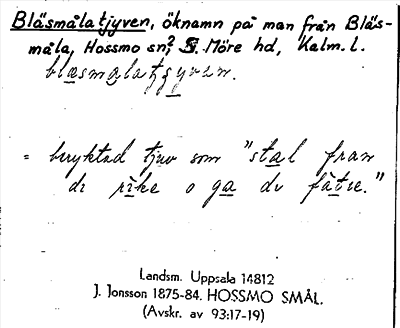 Bläsmålatjyven, öknamn på man från Bläs-
måla, Hossmo sn? S. Möre hd, Kalm. l.
blæsmalatjyven.
= beryktad tjuv som "stal fran
di rike o ga di fätie."
Landsm. Uppsala 14812
J. Jonsson 1875-84. HOSSMO SMÅL.
(Avskr. av 93:17-19)